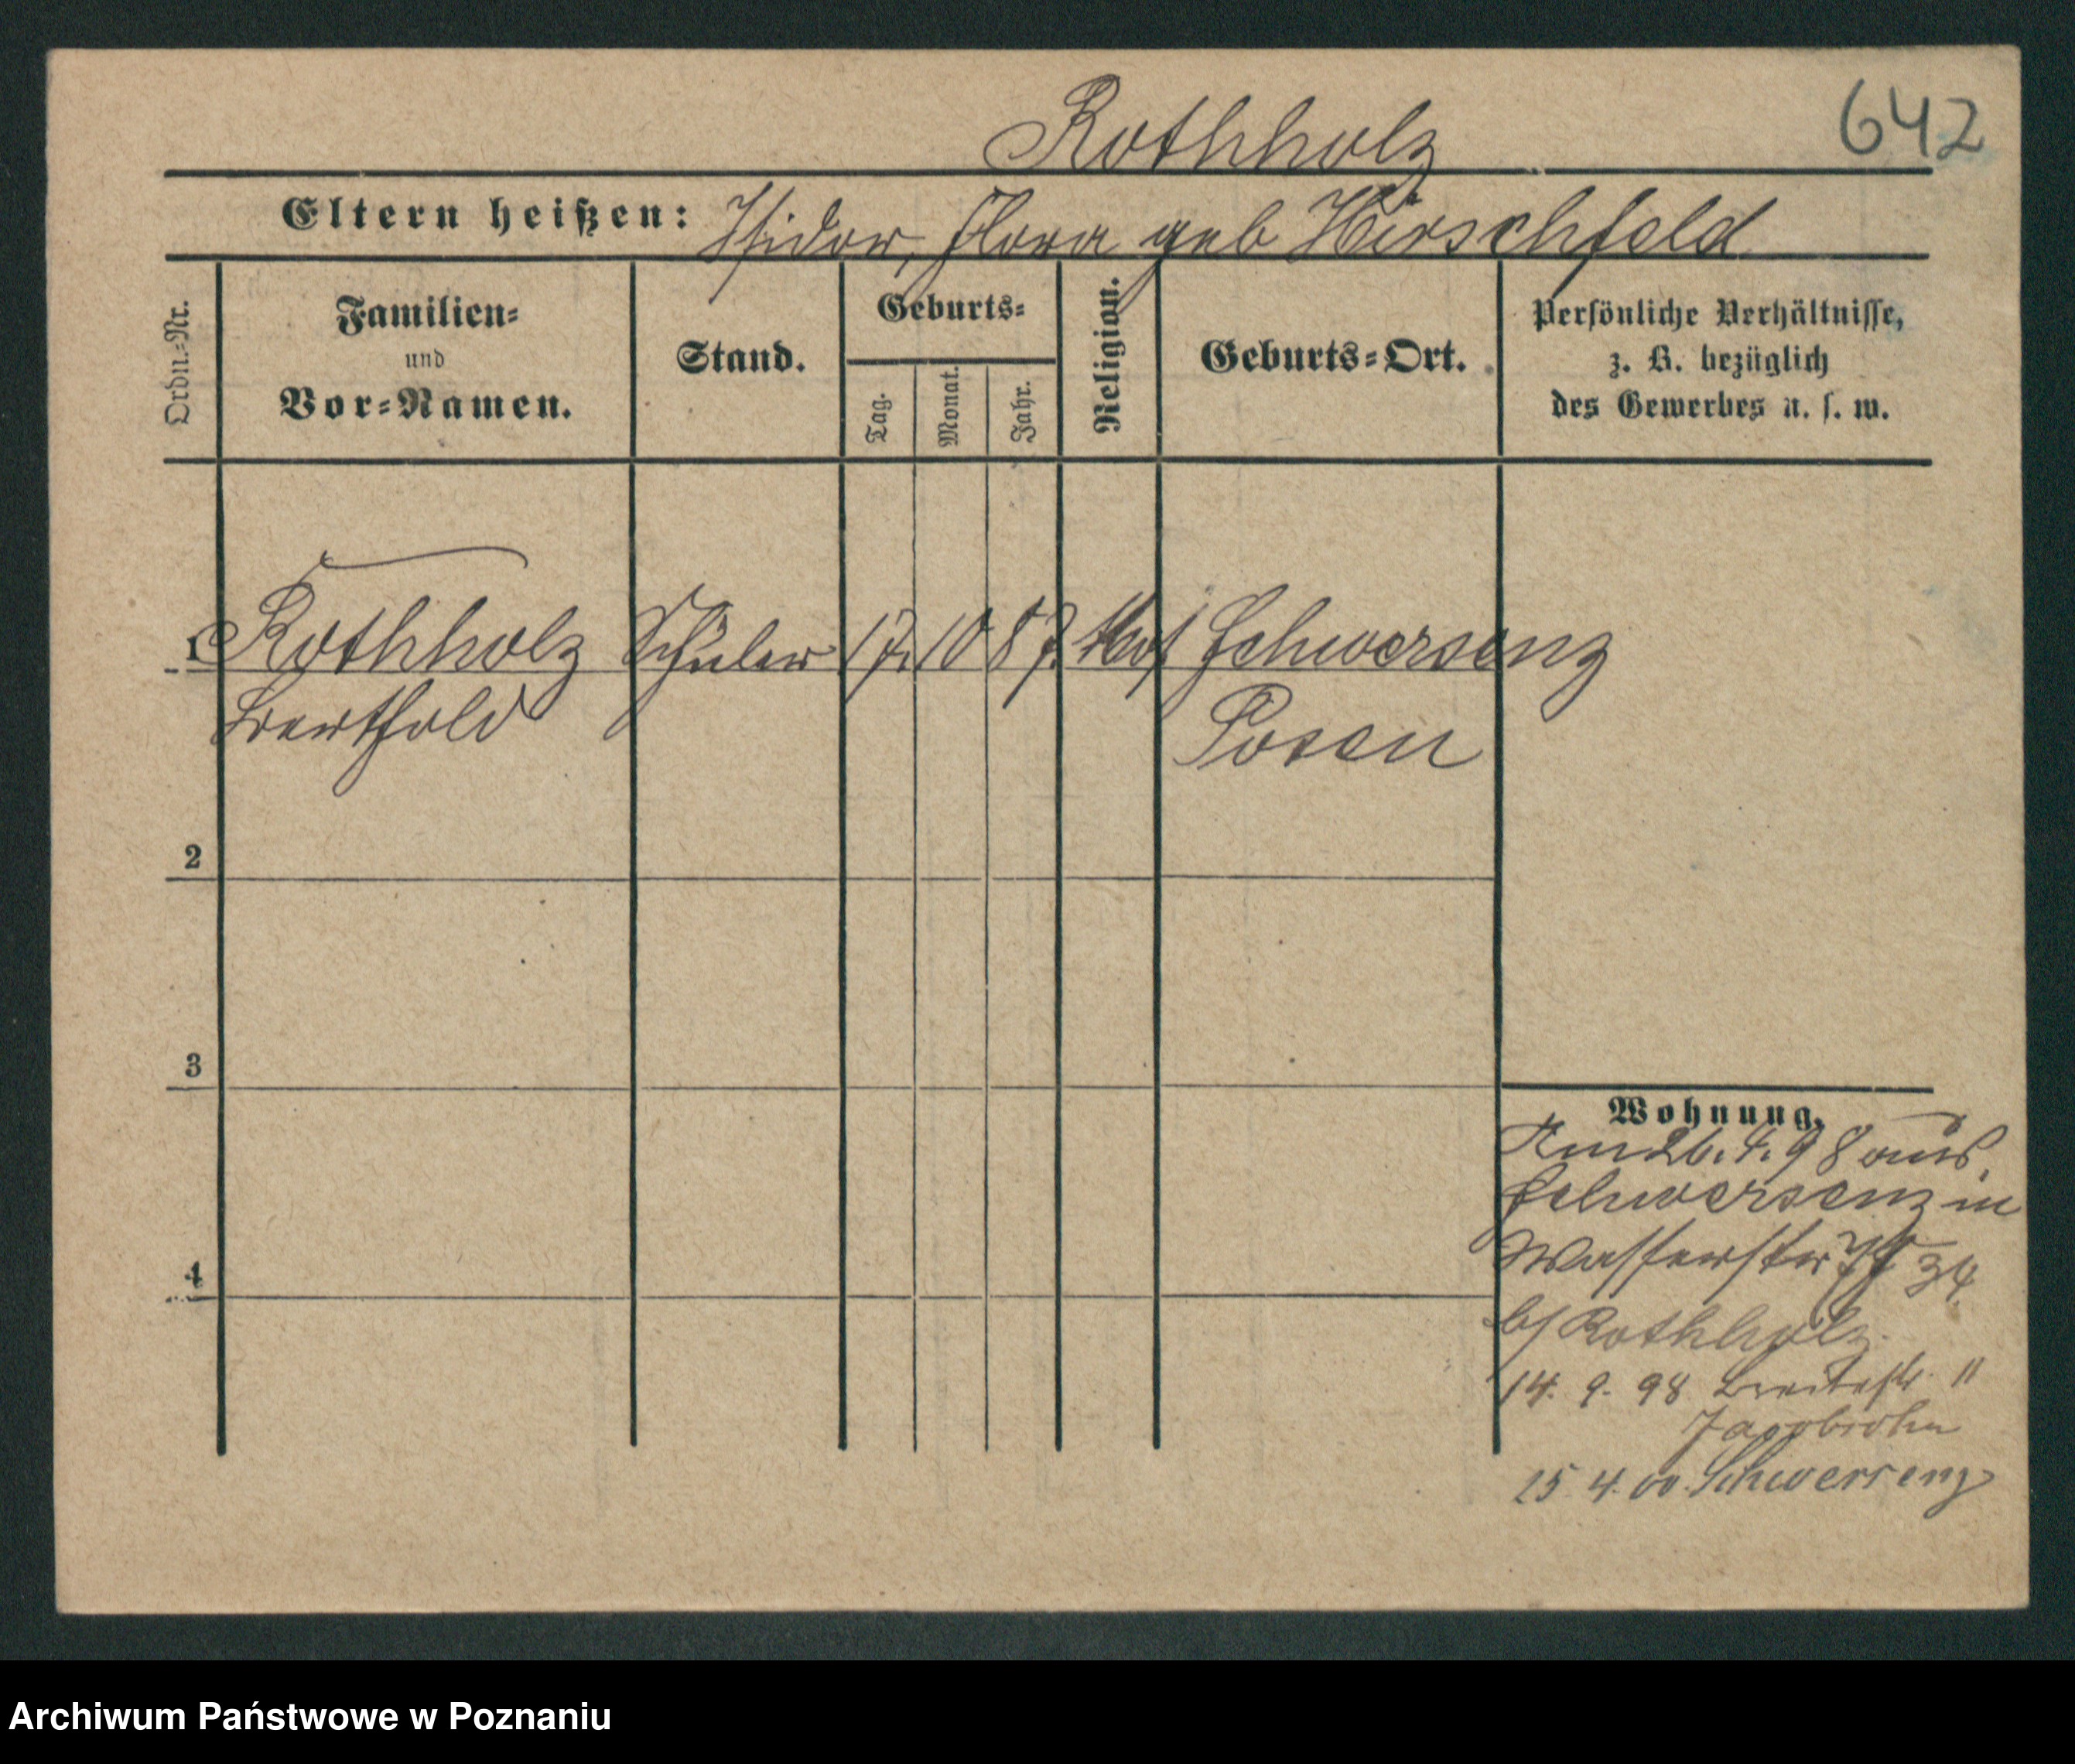 642
Rothholz
Eltern heißen: Isidor, Flora geb Hirschfeld
Ordn.-Nr.
Familien-
und
Vor-Namen.
Stand.
Geburts-
Tag.
Monat.
Jahr.
Religion.
Geburts-Ort.
Persönliche Verhältnisse,
z. B. bezüglich
des Gewerbes u. s. w.
1 Rothholz Schüler 17. 10 87. mos Schwersenz
Berthold
Posen
2
3
4
Wohnung.
Am 26. 4. 98 aus
Schwersenz in
Wasserstr 34
b/ Rothholz.
14. 9. 98 Breitestr. 11
Jacobsohn
25 4. 00. Schwersenz
Archiwum Państwowe w Poznaniu